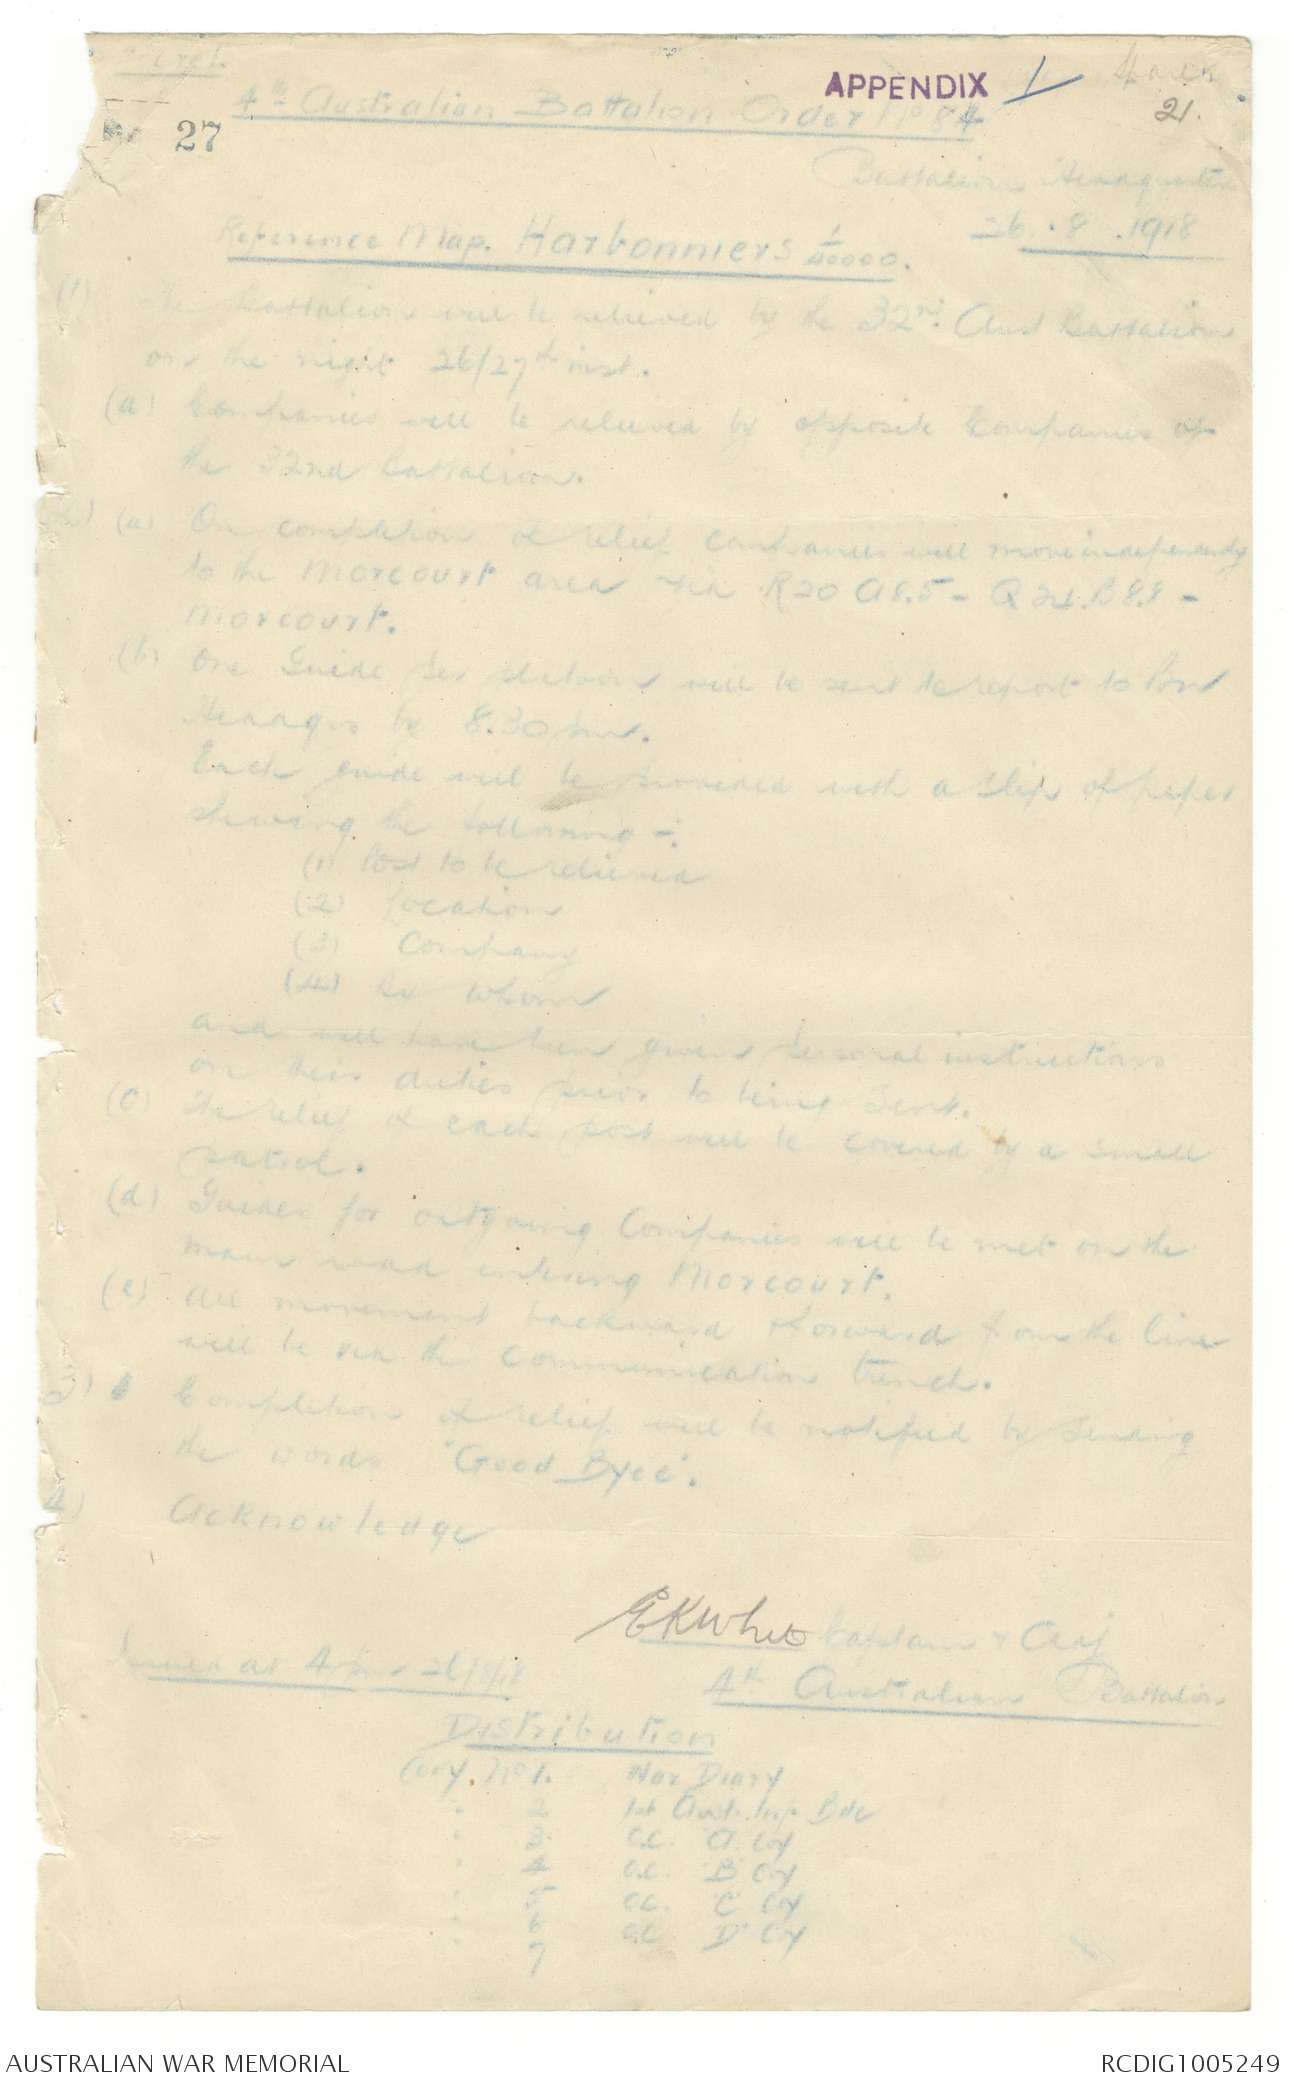 APPENDIX 1
21.
27
4th Australian Battalion Order No 84
Battalion Headquarters
26.8.1918
Reference Map. Harbonniers 1/40000.
(1) The Battalion will be relieved by the 32nd. Aust Battalion
on the night 26/27th inst.
(a) Companies will be relieved by opposite Companies of
the 32nd Battalion.
(a) On completion of relief companies will move independently
to the Morcourt area via R20 A8.5 - Q24.B8.8 -
Morcourt.
(b) One Guide per will be sent to report to Bn
Headqrs by 8.30 pm.
Each guide will be provided with a slip of paper
shewing the following -:
(1) Post to be relieved
(2) Location
(3) Company
(4) By whom
and will have been given personal instructions
on their duties prior to being sent.
(c) The relief of each post will be covered by a small
patrol.
(d) Guides for outgoing Companies will be met on the
main road entering Morcourt.
(e) All movement backward & forward from the line
will be via the communication trench.
3) Completion of relief will be notified by sending
the words "Good Byee".
4) Acknowledge
EKWhite Captain & Adj
Issued at 4 pm 26/8/18
4th Australian Battalion
Distribution
Copy. No 1. War Diary
" 2 1st Aust. Inf. Bde
" 3 O.C. "A" Coy
" 4 O.C. "B" Coy
" 5 O.C. "C" Coy
" 6 O.C. "D" Coy
" 7
AUSTRALIAN WAR MEMORIAL
RCDIG1005249